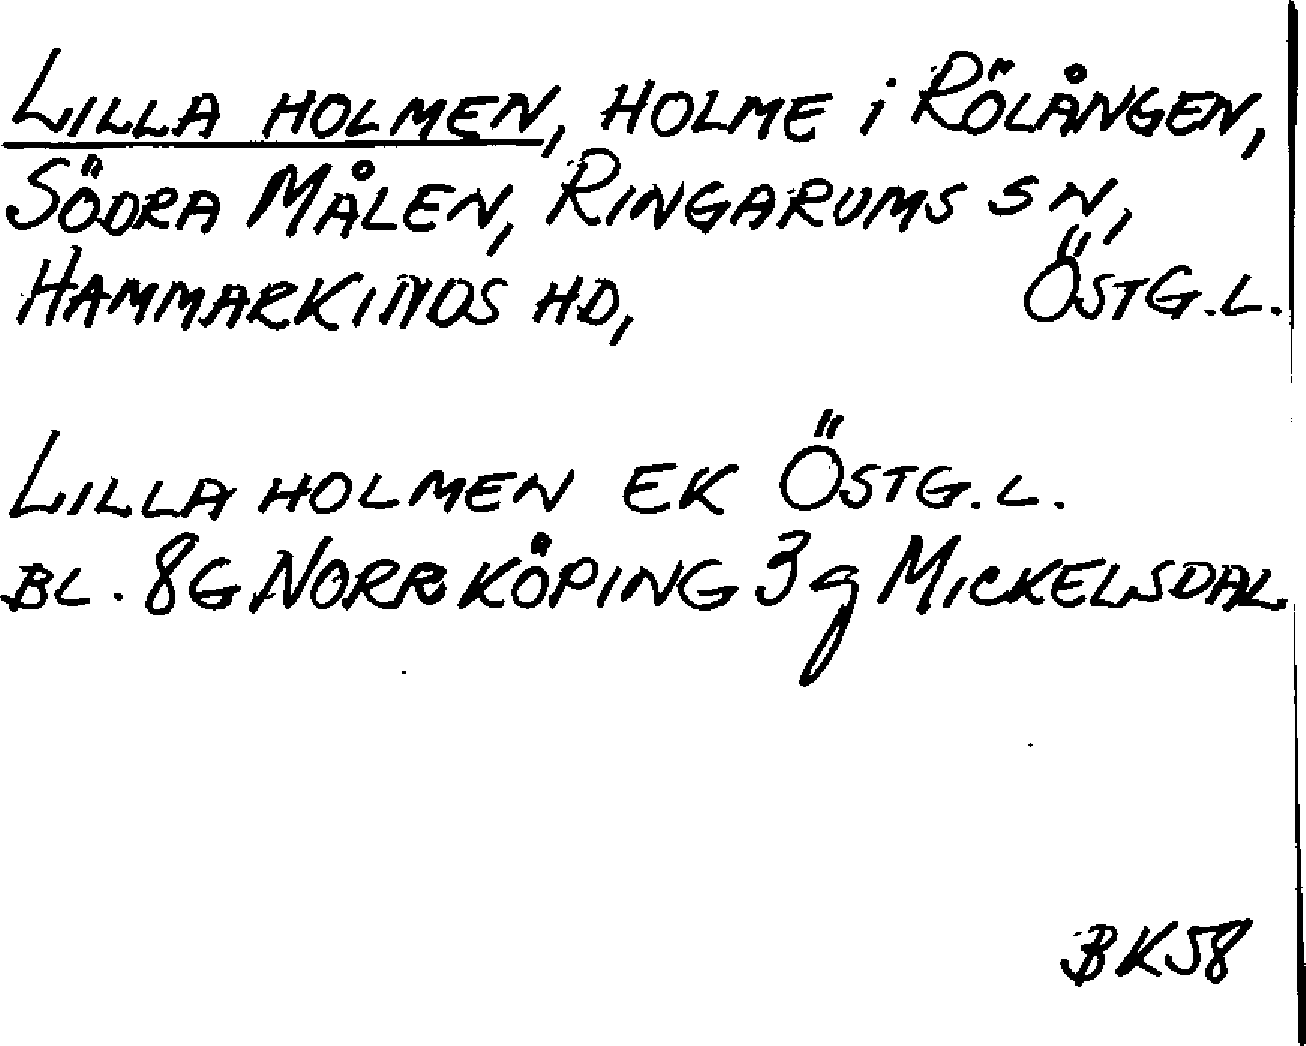 LILLA HOLMEN, HOLME i RÖLÅNGEN,
SÖDRA MÅLEN, RINGARUMS SN,
HAMMARKINDS HD, ÖSTG.L.
LILLA HOLMEN EK ÖSTG.L.
BL. 8G NORRKÖPING 3g MICKELSDAL
BK58